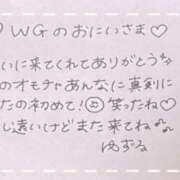 WGのおにいさま♡
いに来てくれてありがとう
のオモチャあんなに真剣に
たの初めて！笑ったね♡
し遠いけどまた来てね
ゆずる